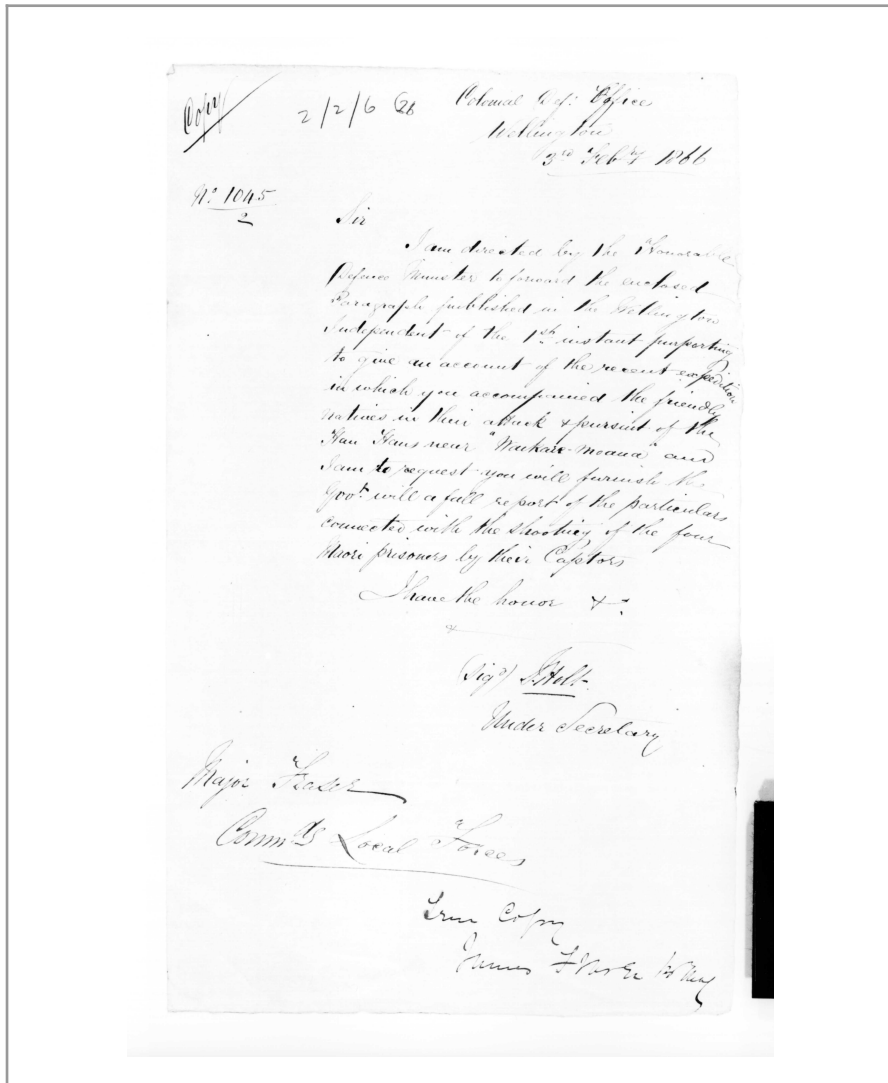 Copy
2/2/6
Colonial Def: Office
Wellington
3rd Feby 1866
No 1045
2
Sir
I am directed by the Honorable
Defence Minister to forward the enclosed
Paragraph published in the Wellington
Independent of the 1st instant purporting
to give an account of the recent expedition
in which you accompanied the friendly
natives in their attack & pursuit of the
Hau Haus near "Waikare-Moana" and
I am to request you will furnish the
Govt will a full report of the particulars
connected with the shooting of the four
Maori prisoners by their Captors
I have the honor &c
(Sigd) J Holt
Under Secretary
Major Fraser
Commdg Local Forces
True Copy
James Fraser